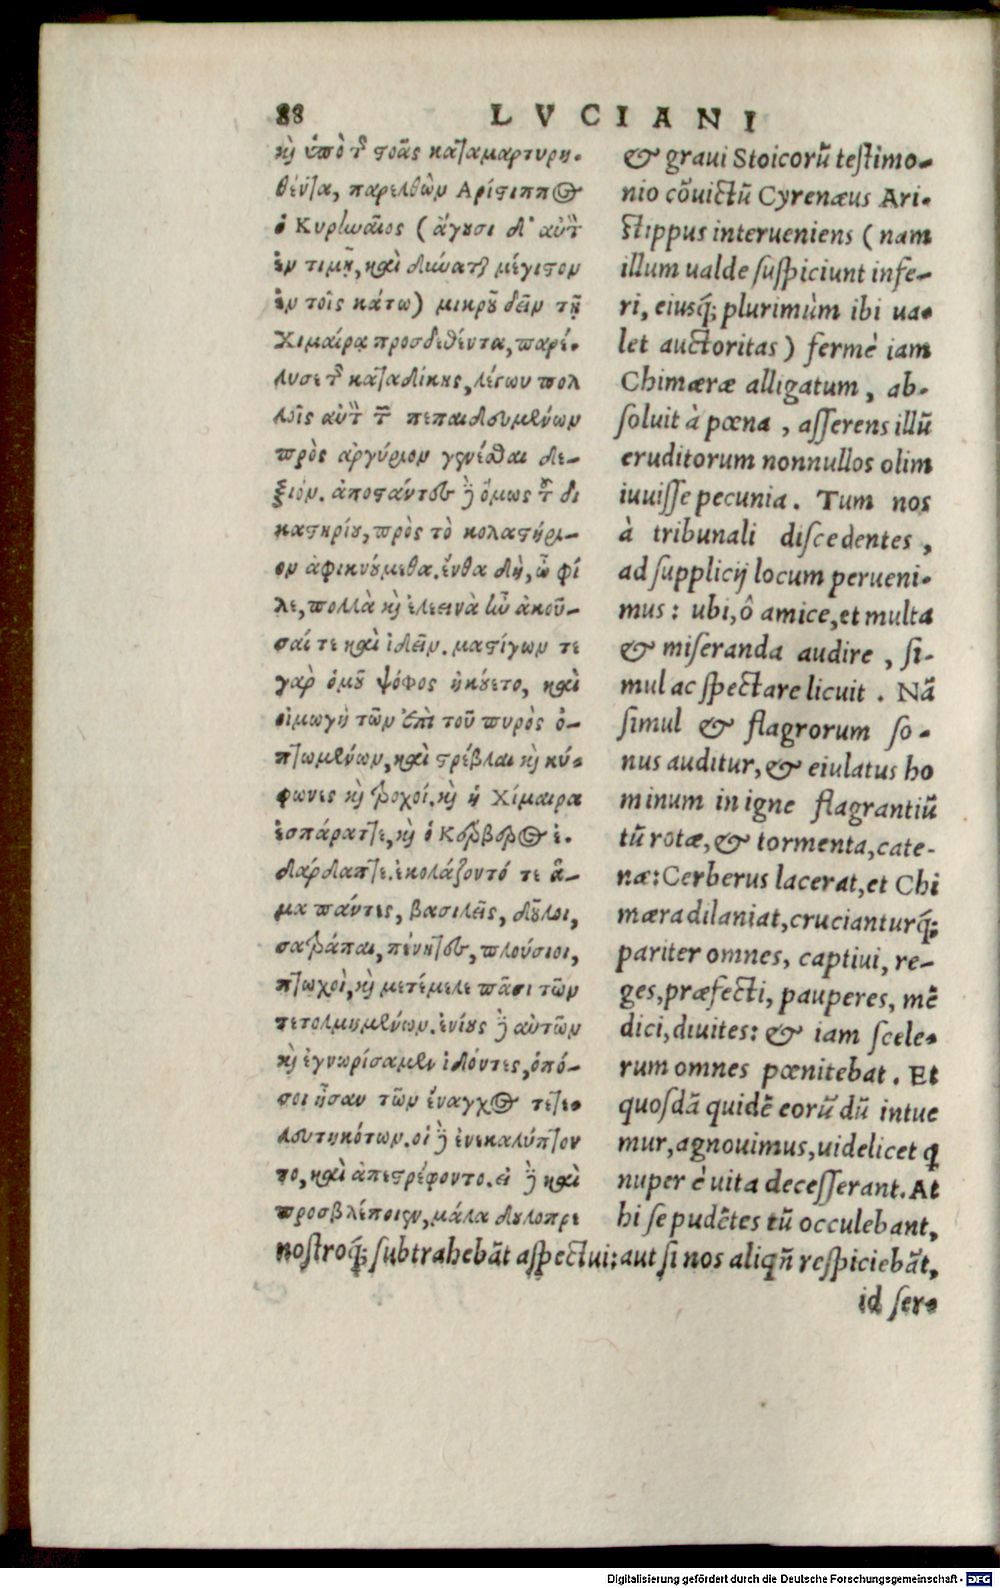 88 LVCIANI
καὶ ὑπὸ τ͂ στοᾶς καταμαρτυρη-
θέντα, παρελθὼν Αρίστιππος
ὁ Κυρηναῖος (ἄγουσι δ' αὐτὸν
ἐν τιμῇ, καὶ δύναται μέγιστον
ἐν τοῖς κάτω) μικροῦ δεῖν τῇ
Χιμαίρᾳ προσδεθέντα, παρέ-
λυσε τ͂ καταδίκης, λέγων πολ
λοῖς αὐτὸν τῶν πεπαιδευμένων
πρὸς ἀργύριον γενέσθαι δε-
ξιόν. ἀποστάντες δὲ ὅμως τοῦ δι
καστηρίου, πρὸς τὸ κολαστήρι-
ον ἀφικνούμεθα. ἔνθα δὴ, ὦ φί
λε, πολλὰ καὶ ἐλεεινὰ ἦν ἀκοῦ-
σαί τε καὶ ἰδεῖν. μαστίγων τε
γὰρ ὁμοῦ ψόφος ἠκούετο, καὶ
οἰμωγὴ τῶν ἐπὶ τοῦ πυρὸς ὀ-
πτωμένων, καὶ στρέβλαι καὶ κύ-
φωνες καὶ τροχοί. καὶ ἡ Χίμαιρα
ἐσπάραττε, καὶ ὁ Κέρβερος ἐ-
δάρδαπτε. ἐκολάζοντό τε ἅ-
μα πάντες, βασιλεῖς, δοῦλοι,
σατράπαι, πένητες, πλούσιοι,
πτωχοὶ, καὶ μετέμελε πᾶσι τῶν
τετολμημένων. ἐνίους δὲ αὐτῶν
καὶ ἐγνωρίσαμεν ἰδόντες, ὁπό-
σοι ἦσαν τῶν ἔναγχος τετε-
λευτηκότων. οἱ δὲ ἐνεκαλύπτον
το, καὶ ἀπεστρέφοντο. εἰ δὲ καὶ
προσβλέποιεν, μάλα δουλοπρε
& graui Stoicorũ testimo-
nio cõuictũ Cyrenæus Ari-
stippus interueniens (nam
illum ualde suspiciunt infe-
ri, eiusq́; plurimùm ibi ua-
let auctoritas) fermè iam
Chimæræ alligatum, ab-
soluit à pœna, asserens illũ
eruditorum nonnullos olim
iuuisse pecunia. Tum nos
à tribunali discedentes,
ad supplicij locum perueni-
mus: ubi, ô amice, et multa
& miseranda audire, si-
mul ac spectare licuit. Nã
simul & flagrorum so-
nus auditur, & eiulatus ho
minum in igne flagrantiũ
tũ rotæ, & tormenta, cate-
næ: Cerberus lacerat, et Chi
mæra dilaniat, cruciantur q́;
pariter omnes, captiui, re-
ges, præfecti, pauperes, mẽ
dici, diuites: & iam scele-
rum omnes pœnitebat. Et
quosdã quidẽ eorũ dũ intue
mur, agnouimus, uidelicet q
nuper è uita decesserant. At
hi se pudẽtes tũ occulebant,
nostroq́; subtrahebãt aspectui: aut si nos aliqñ respiciebãt,
id ser-
Digitalisierung gefördert durch die Deutsche Forschungsgemeinschaft - DFG